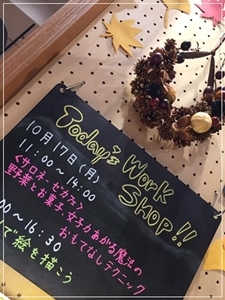 Today's Work
Shop!!
10月17日(月)
11:00〜14:00
〈サロネ・ゼカラ〉
野菜とお菓子 女子力あがる魔法の
おもてなしテクニック
00〜16:30
で絵を描こう